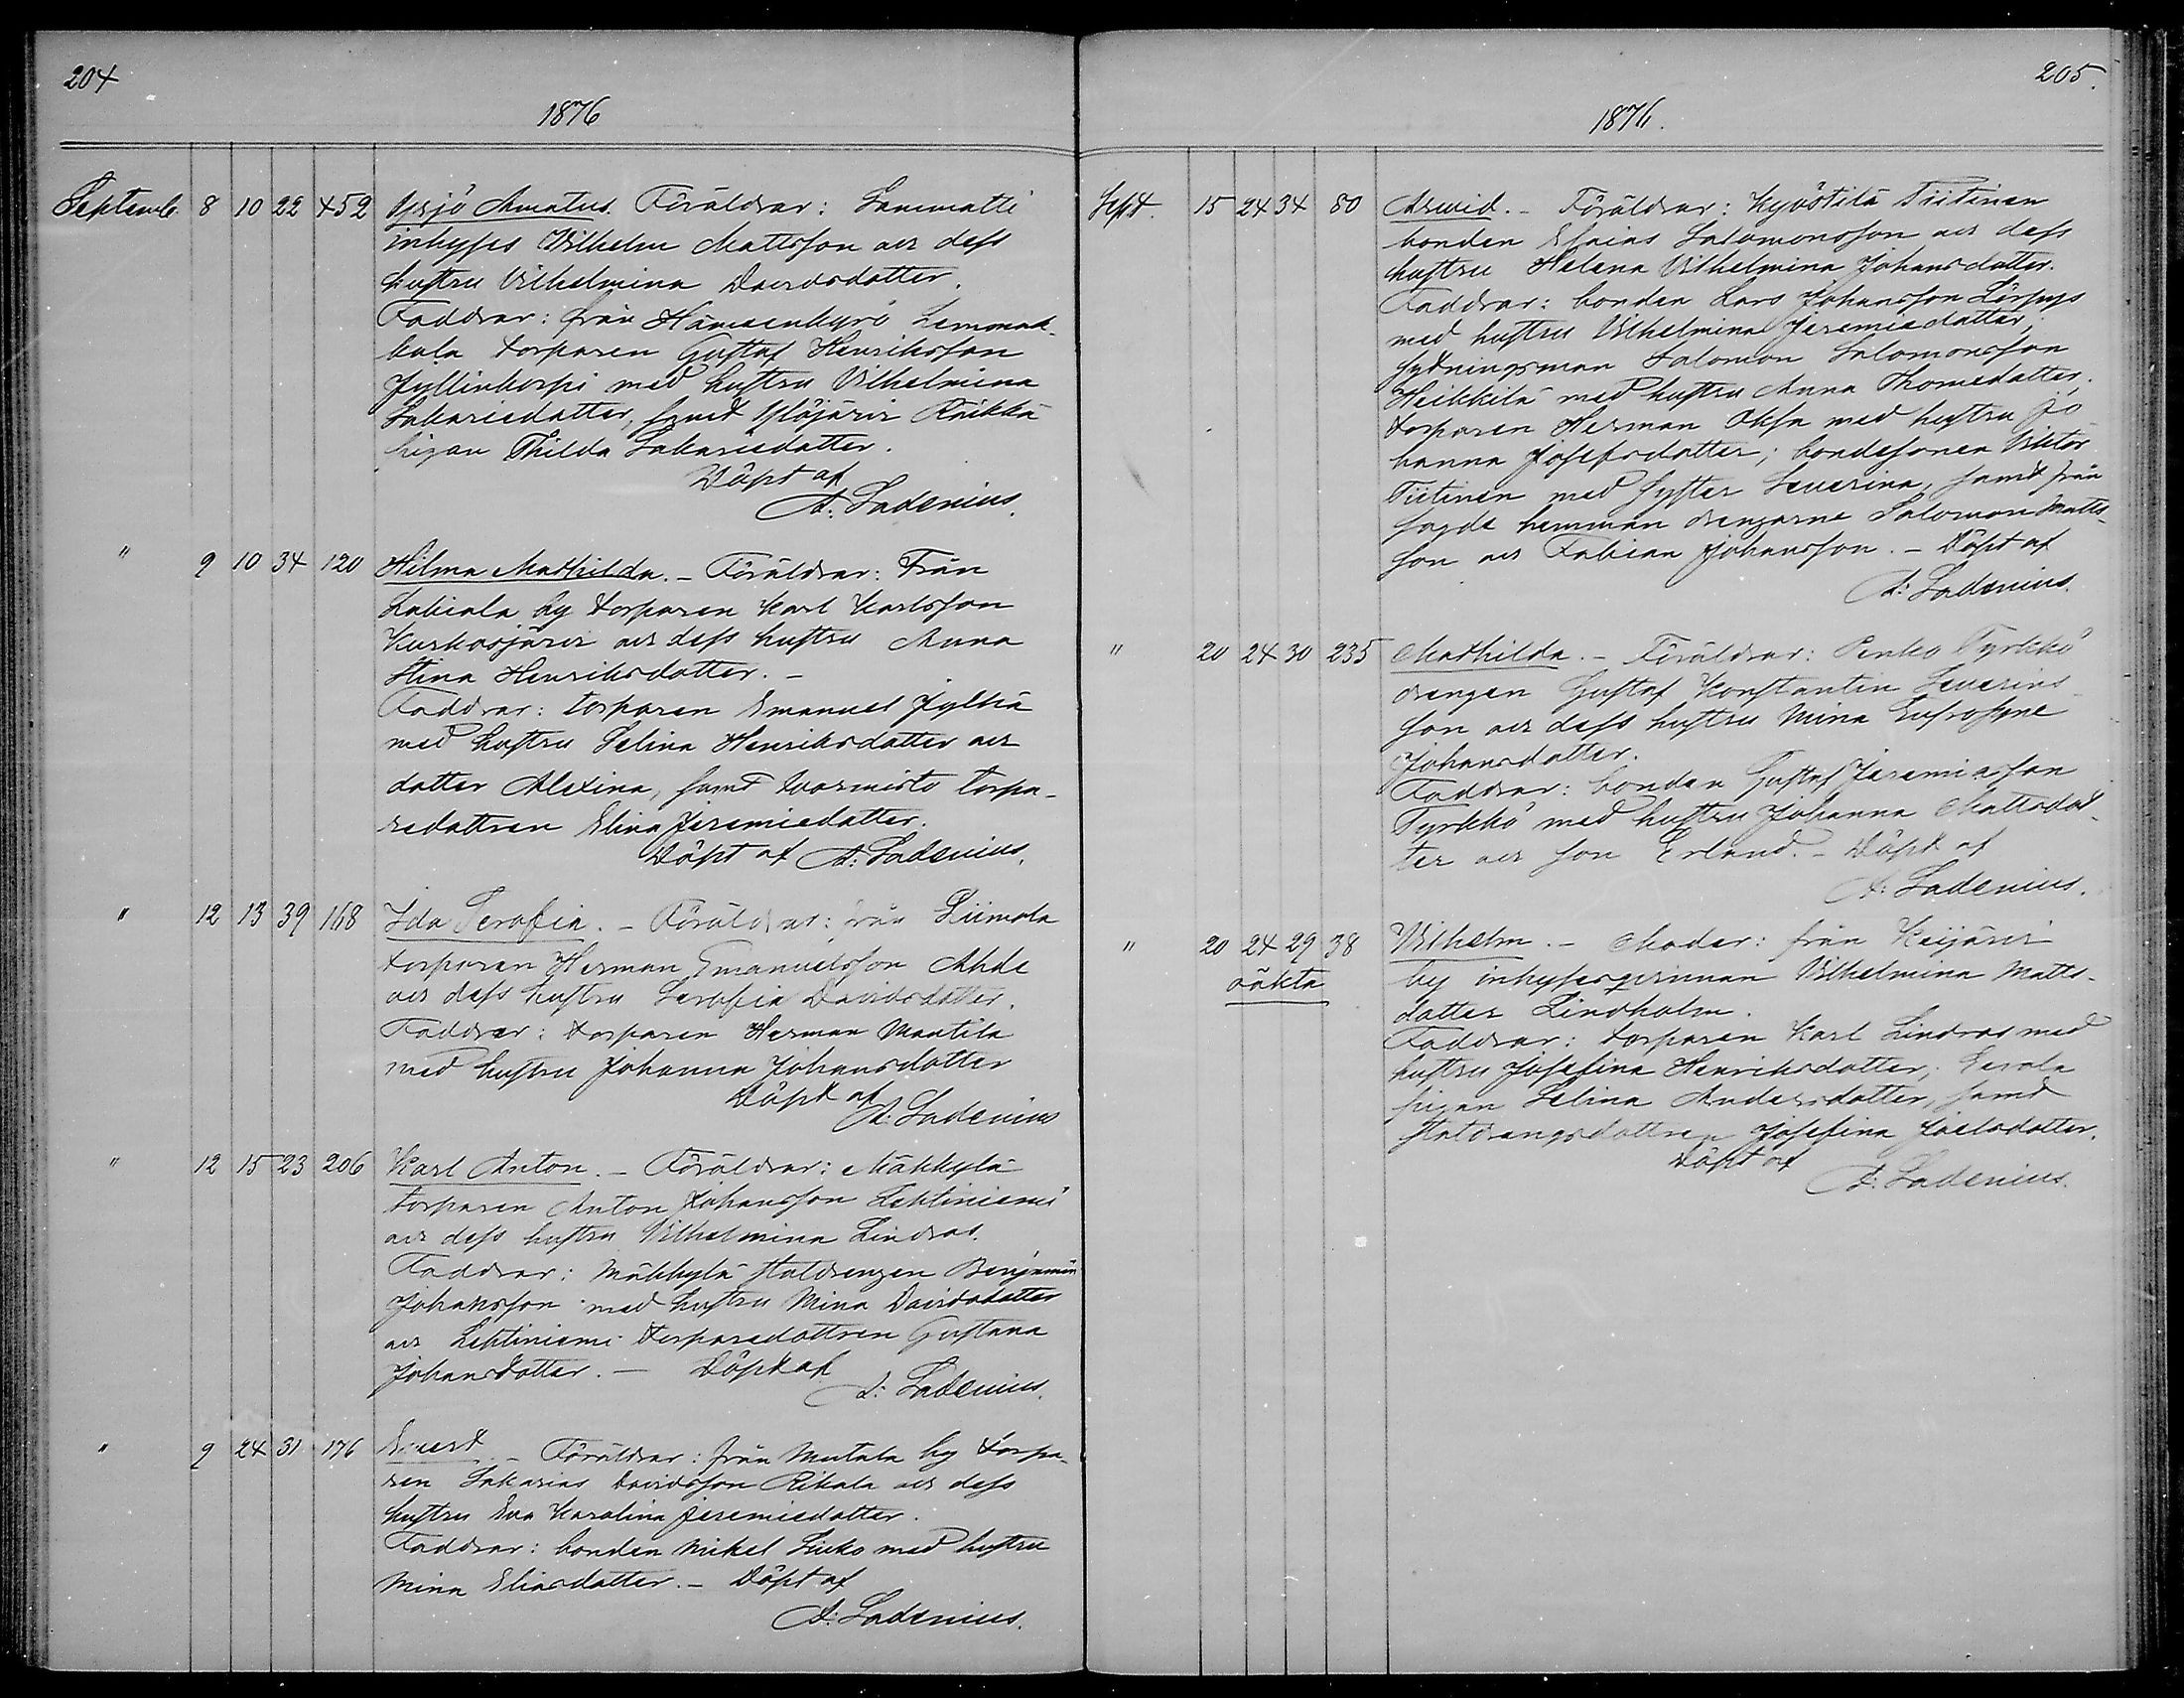 204
1876
Septemb. 8 10 22 452 Yrjö Amatus. Föräldrar: Sammatti
inhyses Vilhelm Mattsson och dess
hustru Vilhelmina Davidsdotter.
Faddrar: från Hämeenkyrö Lemmak-
kala torparen Gustaf Henriksson
Jyllinkorpi med hustru Vilhelmina
Sakariedotter, samt Ylöjärvi Räikkä
pigan Thilda Sakariedotter.
Döpt af
A: Ladenius.
" 9 10 34 120 Hilma Mathilda. – Föräldrar: Från
Lakiala by torparen Karl Karlsson
Kurkosjärvi och dess hustru Anna
Stina Henriksdotter. –
Faddrar: torparen Emanuel Jylhä
med hustru Selina Henriksdotter och
dotter Alexina, samt Wormisto torpa-
redottren Elina Jeremiedotter.
Döpt af A: Ladenius.
" 12 13 39 168 Ida Serafia. – Föräldrar: från Liimola
torparen Herman Emanuelsson Ahde
och dess hustru Serafia Davidsdotter.
Faddrar: torparen Herman Mantila
med hustru Johanna Johansdotter
Döpt af
A: Ladenius
" 12 15 23 206 Karl Anton. – Föräldrar: Mäkkylä
torparen Anton Johansson Lehtiniemi
och dess hustru Vilhelmina Lindros.
Faddrar: Mäkkylä statdrengen Benjamin
Johansson med hustru Mina Davidsdotter
och Lehtiniemi torparedottren Gustava
Johansdotter. – Döpt af
A: Ladenius.
" 9 24 31 176 Evert – Föräldrar: från Mutala by torpa-
ren Sakarias Davidsson Rikala och dess
hustru Eva Karolina Jeremiedotter.
Faddrar: bonden Mikel Sirko med hustru
Mina Eliasdotter. – Döpt af
A: Ladenius.
205.
1876.
Sept. 15 24 34 80 Arvid. – Föräldrar: Kyöstilä Tiitinen
bonden Esaias Salomonsson och dess
hustru Helena Vilhelmina Johansdotter.
Faddrar: bonden Lars Johansson Lörpys
med hustru Vilhelmina Jeremiedotter;
sydningsman Salomon Salomonsson
Heikkilä med hustru Anna Thomedotter;
torparen Herman Oksa med hustru Jo
hanna Josefsdotter; bondesonen Viktor
Tiitinen med syster Severina, samt från
sagde hemman drengarne Salomon Matts-
son och Fabian Johansson. – Döpt af
A: Ladenius.
" 20 24 30 235 Mathilda. – Föräldrar: Penko Tyrkkö
drengen Gustaf Konstantin Severins-
son och dess hustru Mina Eufrosyne
Johansdotter.
Faddrar: bonden Gustaf Jeremiasson
Tyrkkö med hustru Johanna Mattsdot-
ter och son Erland. – Döpt af
A: Ladenius.
" 20 24 29 38 Vilhelm. – Moder: från Keijärvi
oäkta by inhysesqvinnan Vilhelmina Matts-
dotter Lindholm.
Faddrar: torparen Karl Lindros med
hustru Josefina Henriksdotter, Eerola
pigan Selina Andersdotter, samt
statdrengsdottren Josefina Joelsdotter.
Döpt af
A: Ladenius.